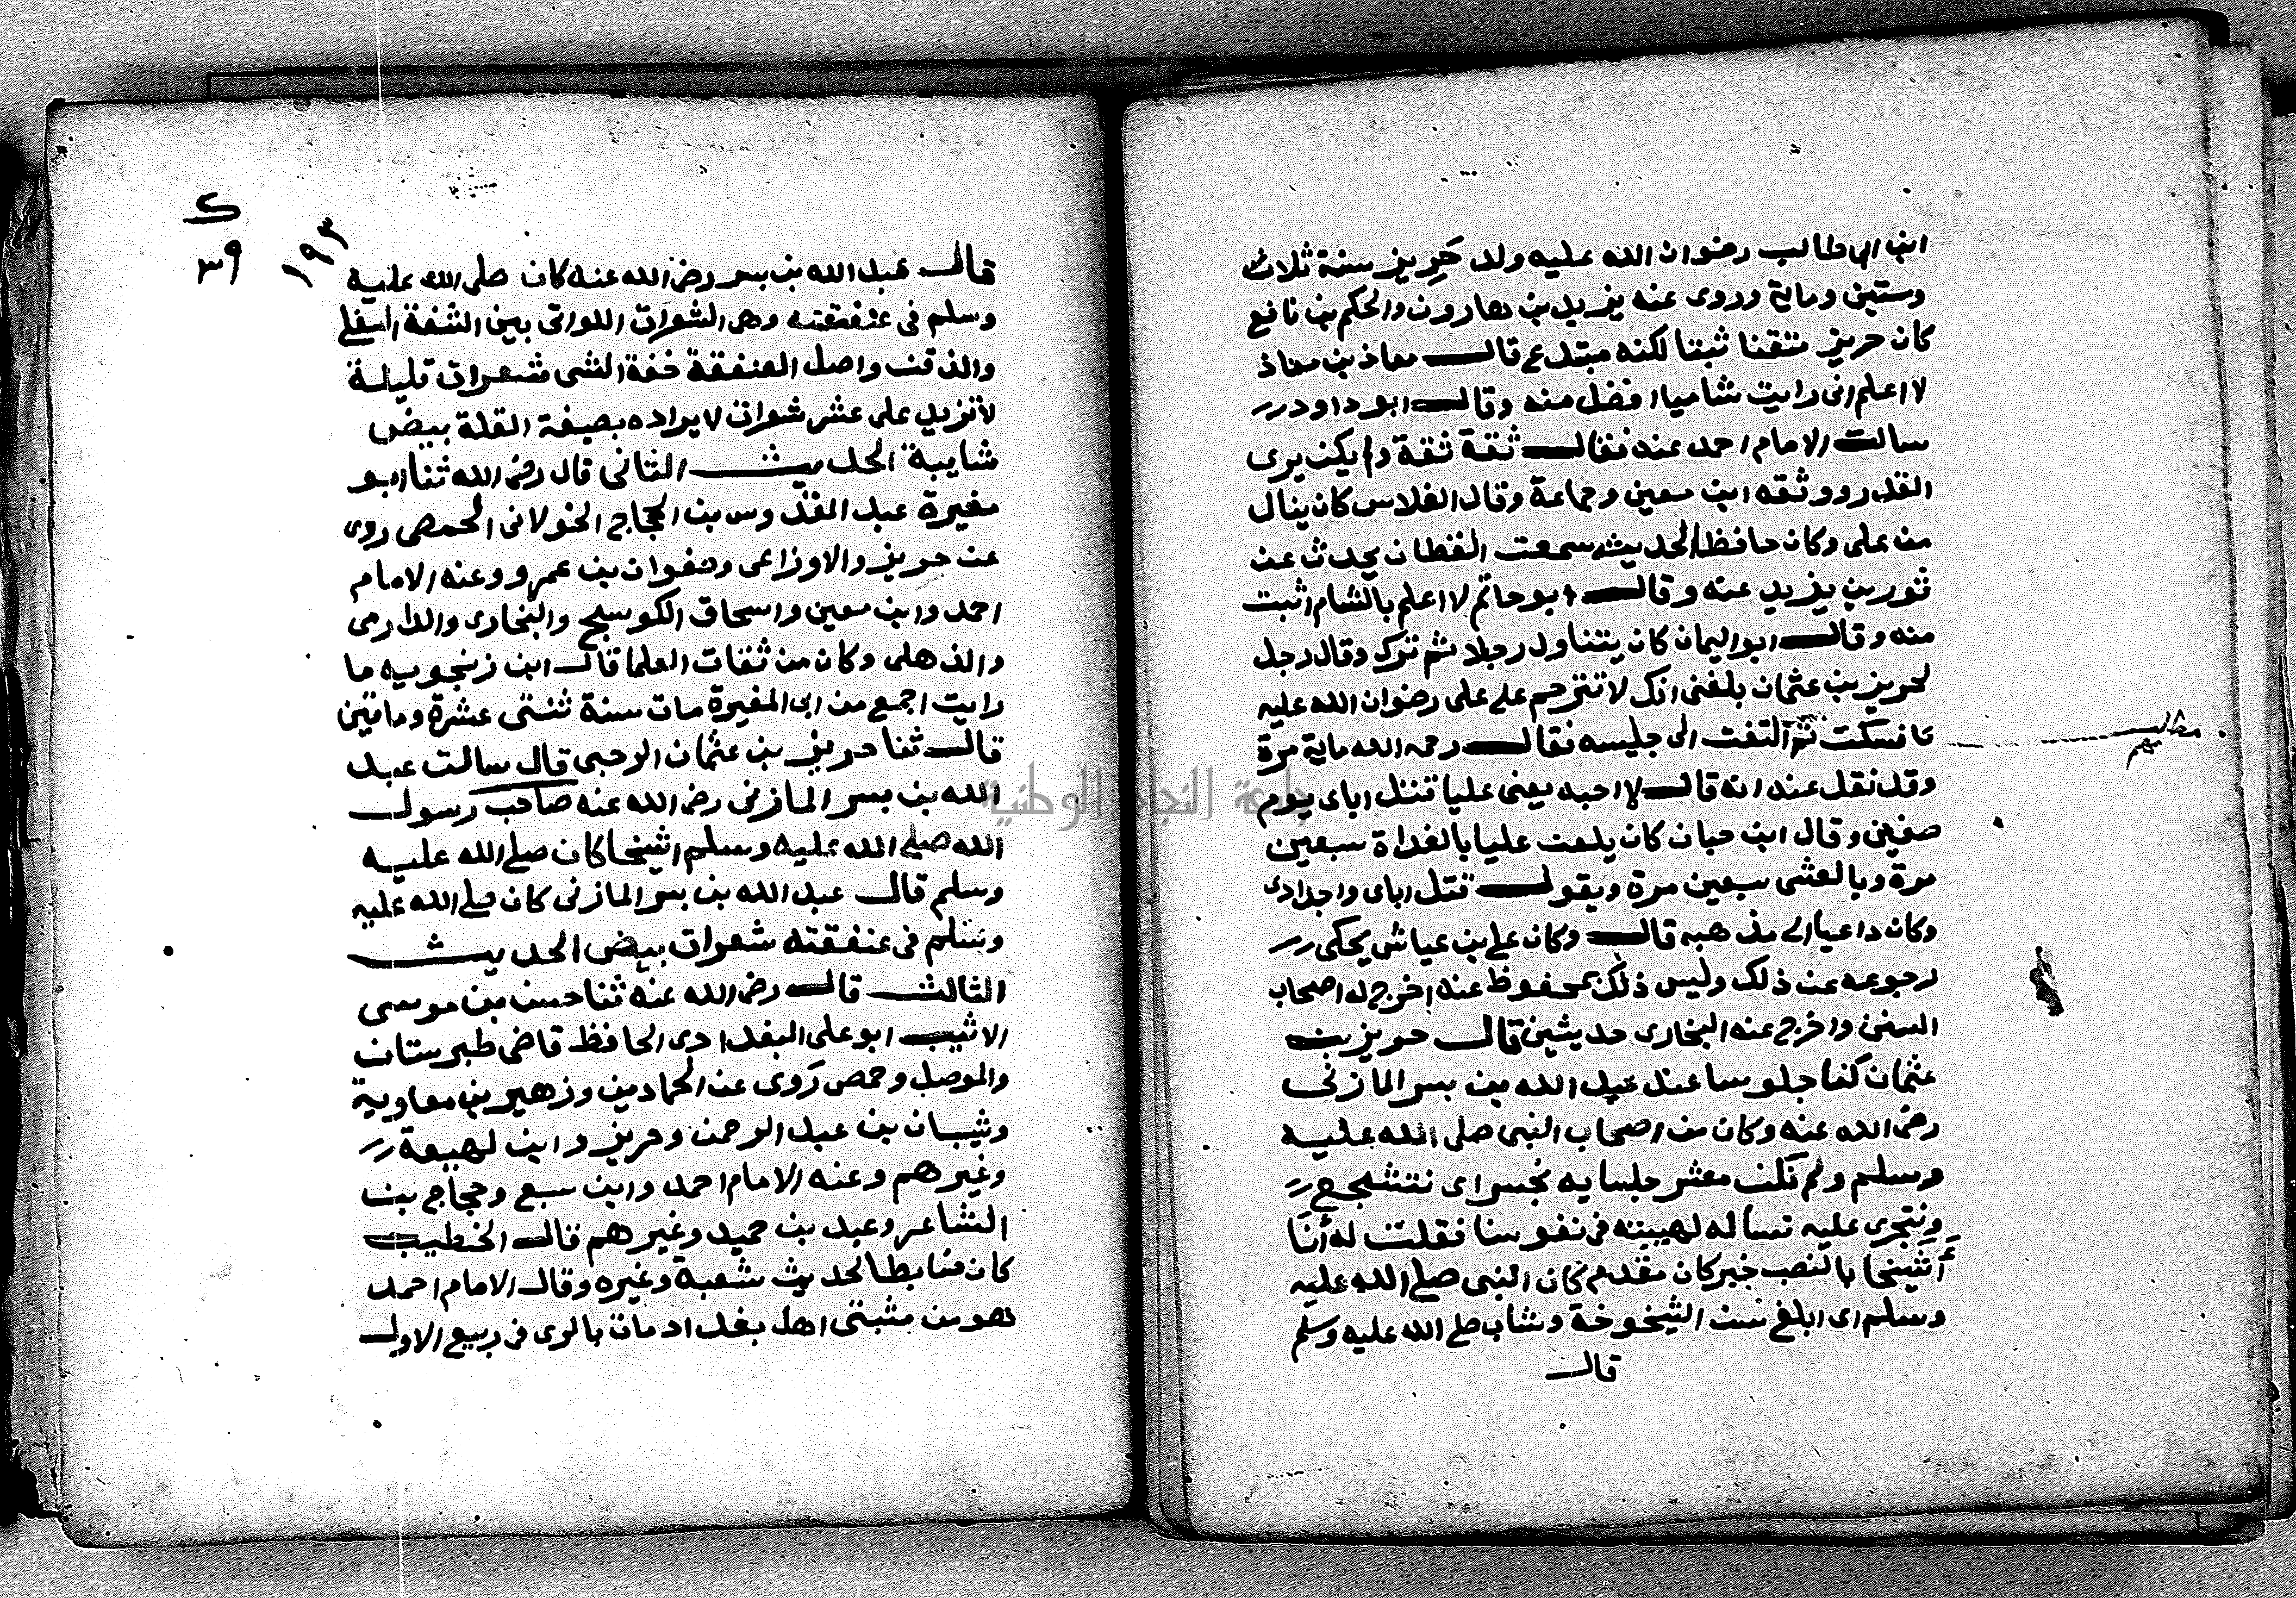 ابن ابى طالب رضوان الله عليه ولد حَرِيز سنة ثلاث
وستين وماية وروى عنه يزيد بن هارون والحكم بن نافع
كان حريز متقنا ثبتا لكنه مبتدع قال معاذ بن معاذ
لا اعلم انى رايت شاميا افضل منه وقال ابو داود
سالت الامام احمد عنه فقال ثقة ثقة ولم يكن يرى
القدر ووثقه ابن معين وجماعة وقال الفلاس كان ينال
من على وكان حافظا لحديثه سمعت القطان يحدث عن
ثور بن يزيد عنه وقال ابو حاتم لا اعلم بالشام اثبت
منه وقال ابو اليمان كان يتناول رجلا ثم ترك وقال رجل
لحريز بن عثمان بلغنى انك لا تترحم على على رضوان الله عليه
فسكت ثم التفت الى جليسه فقال رحمه الله ماية مرة
مطلب
مهم
وقد نقل عنه انه قال لا احبه يعنى عليا قتل اباى يوم
صفين وقال ابن حبان كان يلعن عليا بالغداة سبعين
مرة وبالعشى سبعين مرة ويقول قتل اباى واجدادى
وكان داعيا الى مذهبه قال وكان على بن عياش يحكى
رجوعه عن ذلك وليس ذلك بمحفوظ عنه اخرج له اصحاب
السنن واخرج عنه البخارى حديثين قال حريز بن
عثمان كنا جلوسا عند عبد الله بن بسر المازنى
رضى الله عنه وكان من اصحاب النبى صلى الله عليه
وسلم ولم نكن معشر جلسايه نجسر اى نتشجع
ونتجرى عليه نساله لهيبته فى نفوسنا فقلت له أنا
أشيخا بالنصب خبر كان مقدم كان النبى صلى الله عليه
وسلم اى ابلغ سن الشيخوخة وشاب صلى الله عليه وسلم
قال
ك
٣٩
١٩٣
قال عبد الله بن بسر رضى الله عنه كان صلى الله عليه
وسلم فى عنفقته وهى الشعرات اللواتى بين الشفة السفلى
والذقن واصل العنفقة خفة الشى شعرات قليلة
لا تزيد على عشر شعرات لايراده بصيغة القلة بيض
شايبة الحديث الثانى قال رضى الله ثنا ابو
مغيرة عبد القدوس بن الحجاج الخولانى الحمصى روى
عن حريز والاوزاعى وصفوان بن عمرو وعنه الامام
احمد وابن معين واسحاق الكوسج والبخارى والدارمى
والذهلى وكان من ثقات العلما قال ابن زنجويه ما
رايت اجمع من ابى المغيرة مات سنة ثنتى عشرة ومايتين
قال ثنا حريز بن عثمان الرحبى قال سالت عبد
الله بن بسر المازنى رضى الله عنه صاحب رسول
الله صلى الله عليه وسلم اشيخا كان صلى الله عليه
وسلم قال عبد الله بن بسر المازنى كان صلى الله عليه
وسلم فى عنفقته شعرات بيض الحديث
الثالث قال رضى الله عنه ثنا حسن بن موسى
الاشيب ابو على البغدادى الحافظ قاضى طبرستان
والموصل وحمص رَوى عن الحمادين وزهير بن معاوية
وشيبان بن عبد الرحمن وحريز وابن لهيعة
وغيرهم وعنه الامام احمد وابن سبع وحجاج بن
الشاعر وعبد بن حميد وغيرهم قال الخطيب
كان ضابطا لحديث شعبة وغيره وقال الامام احمد
هو من مثبتى اهل بغداد مات بالرى فى ربيع الاول
جامعة النجاح الوطنية